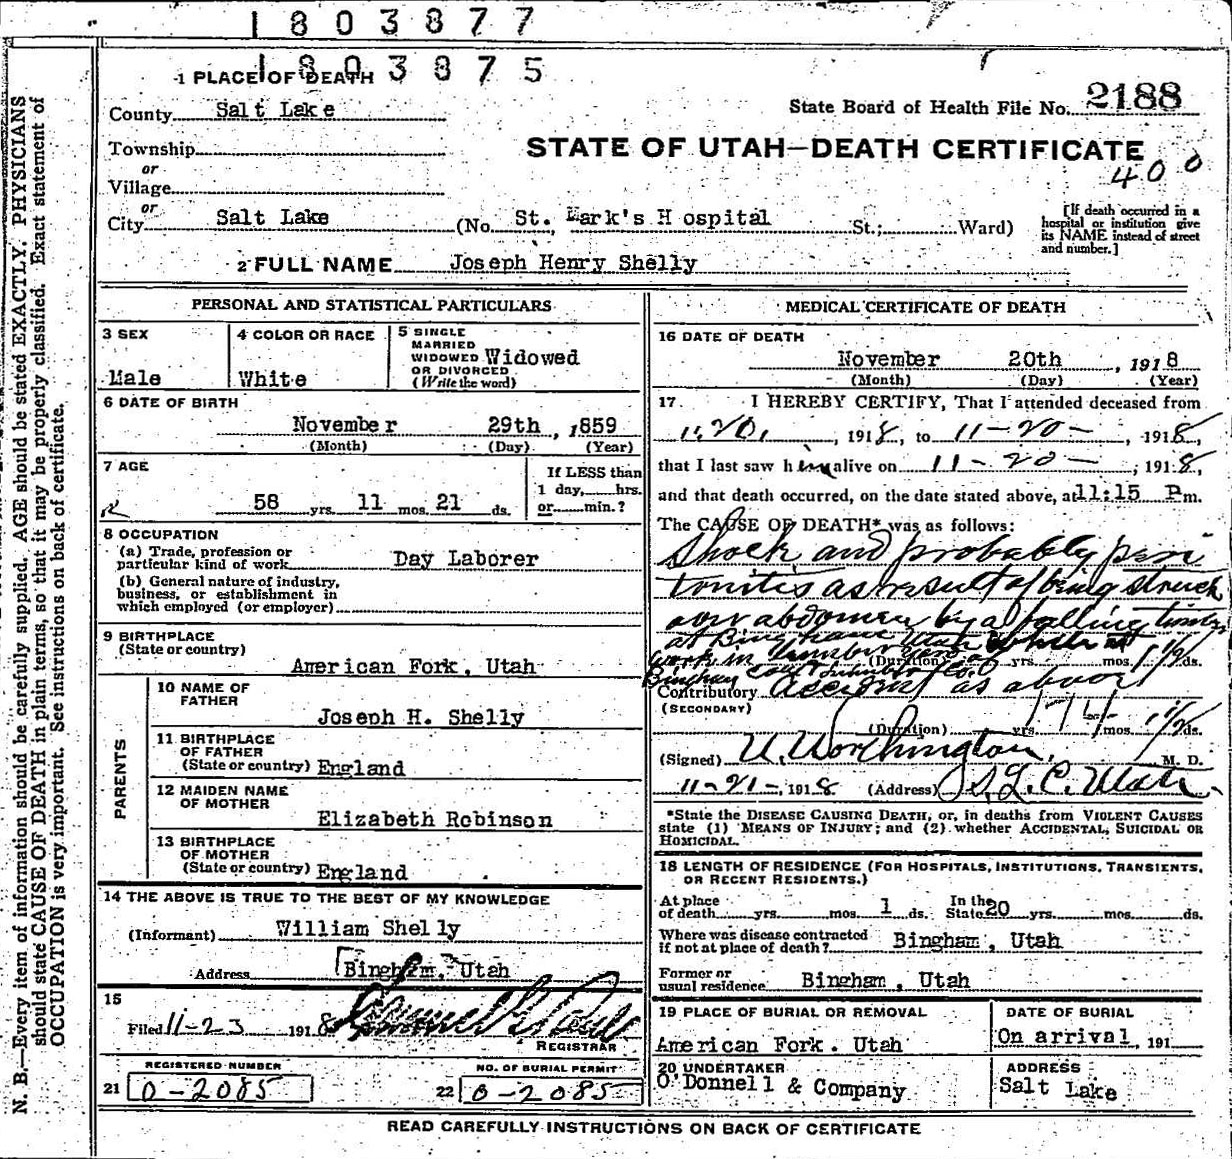 1803877
1803875
1 PLACE OF DEATH
County Salt Lake
State Board of Health File No. 2188
Township
or
Village
or
City Salt Lake (No. St. Mark's Hospital St.; Ward)
STATE OF UTAH—DEATH CERTIFICATE
400
[If death occurred in a
hospital or institution give
its NAME instead of street
and number.]
2 FULL NAME Joseph Henry Shelly
PERSONAL AND STATISTICAL PARTICULARS
3 SEX
Male
4 COLOR OR RACE
White
5 SINGLE
MARRIED
WIDOWED Widowed
OR DIVORCED
(Write the word)
6 DATE OF BIRTH
November 29th, 1859
(Month) (Day) (Year)
7 AGE
58 yrs. 11 mos. 21 ds.
If LESS than
1 day, hrs.
or min.?
8 OCCUPATION
(a) Trade, profession or
particular kind of work Day Laborer
(b) General nature of industry,
business, or establishment in
which employed (or employer)
9 BIRTHPLACE
(State or country)
American Fork, Utah
PARENTS
10 NAME OF
FATHER
Joseph H. Shelly
11 BIRTHPLACE
OF FATHER
(State or country) England
12 MAIDEN NAME
OF MOTHER
Elizabeth Robinson
13 BIRTHPLACE
OF MOTHER
(State or country) England
14 THE ABOVE IS TRUE TO THE BEST OF MY KNOWLEDGE
(Informant) William Shelly
Address Bingham, Utah
15
Filed 11-23 1918
REGISTRAR
REGISTERED NUMBER
21 0-2085
NO. OF BURIAL PERMIT
22 0-2085
MEDICAL CERTIFICATE OF DEATH
16 DATE OF DEATH
November 20th, 1918
(Month) (Day) (Year)
17. I HEREBY CERTIFY, That I attended deceased from
11.20, 1918, to 11-20-, 1918,
that I last saw him alive on 11-20-, 1918,
and that death occurred, on the date stated above, at 11:15 Pm.
The CAUSE OF DEATH* was as follows:
Shock and probably peri
tonitis as result of being struck
over abdomen by a falling timber
at Bingham Utah while at
work in
(Duration) yrs. mos. 1 1/2 ds.
Contributory accident as above
(SECONDARY)
(Duration) yrs. mos. 1 1/2 ds.
(Signed) U. Worthington, M. D.
11-21-, 1918 (Address) S. L. C. Utah
*State the DISEASE CAUSING DEATH, or, in deaths from VIOLENT CAUSES
state (1) MEANS OF INJURY; and (2) whether ACCIDENTAL, SUICIDAL OR
HOMICIDAL.
18 LENGTH OF RESIDENCE (FOR HOSPITALS, INSTITUTIONS, TRANSIENTS,
OR RECENT RESIDENTS.)
At place
of death yrs. mos. 1 ds.
In the
State 20 yrs. mos. ds.
Where was disease contracted
if not at place of death? Bingham, Utah
Former or
usual residence Bingham, Utah
19 PLACE OF BURIAL OR REMOVAL
American Fork. Utah
DATE OF BURIAL
On arrival, 191
20 UNDERTAKER
O'Donnell & Company
ADDRESS
Salt Lake
READ CAREFULLY INSTRUCTIONS ON BACK OF CERTIFICATE
N. B.—Every item of information should be carefully supplied. AGE should be stated EXACTLY. PHYSICIANS
should state CAUSE OF DEATH in plain terms, so that it may be properly classified. Exact statement of
OCCUPATION is very important. See instructions on back of certificate.